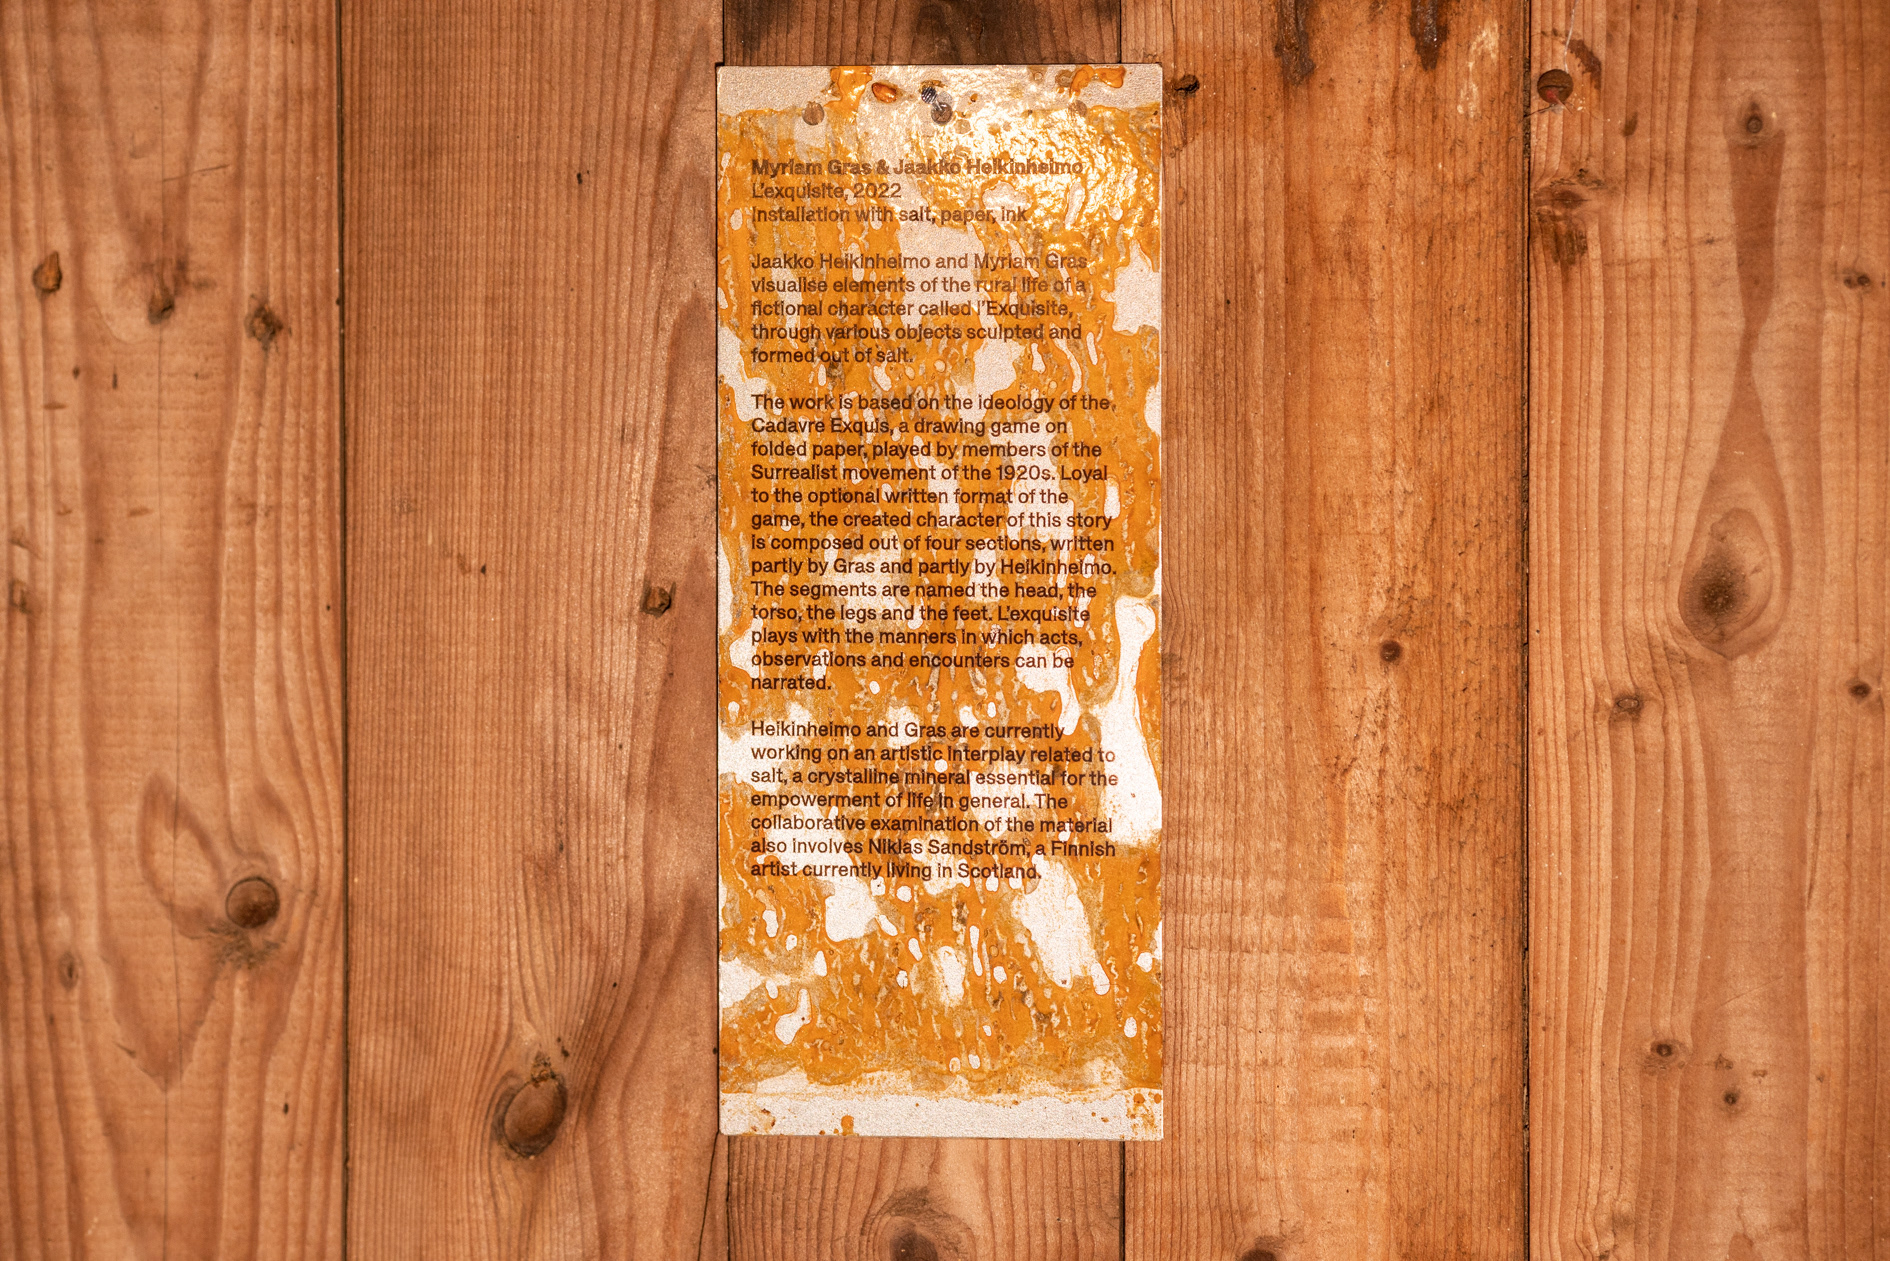 Myriam Gras & Jaakko Heikinheimo
L'exquisite, 2022
Installation with salt, paper, ink
Jaakko Heikinheimo and Myriam Gras
visualise elements of the rural life of a
fictional character called l'Exquisite,
through various objects sculpted and
formed out of salt.
The work is based on the ideology of the
Cadavre Exquis, a drawing game on
folded paper, played by members of the
Surrealist movement of the 1920s. Loyal
to the optional written format of the
game, the created character of this story
is composed out of four sections, written
partly by Gras and partly by Heikinheimo.
The segments are named the head, the
torso, the legs and the feet. L'exquisite
plays with the manners in which acts,
observations and encounters can be
narrated.
Heikinheimo and Gras are currently
working on an artistic interplay related to
salt, a crystalline mineral essential for the
empowerment of life in general. The
collaborative examination of the material
also involves Niklas Sandström, a Finnish
artist currently living in Scotland.